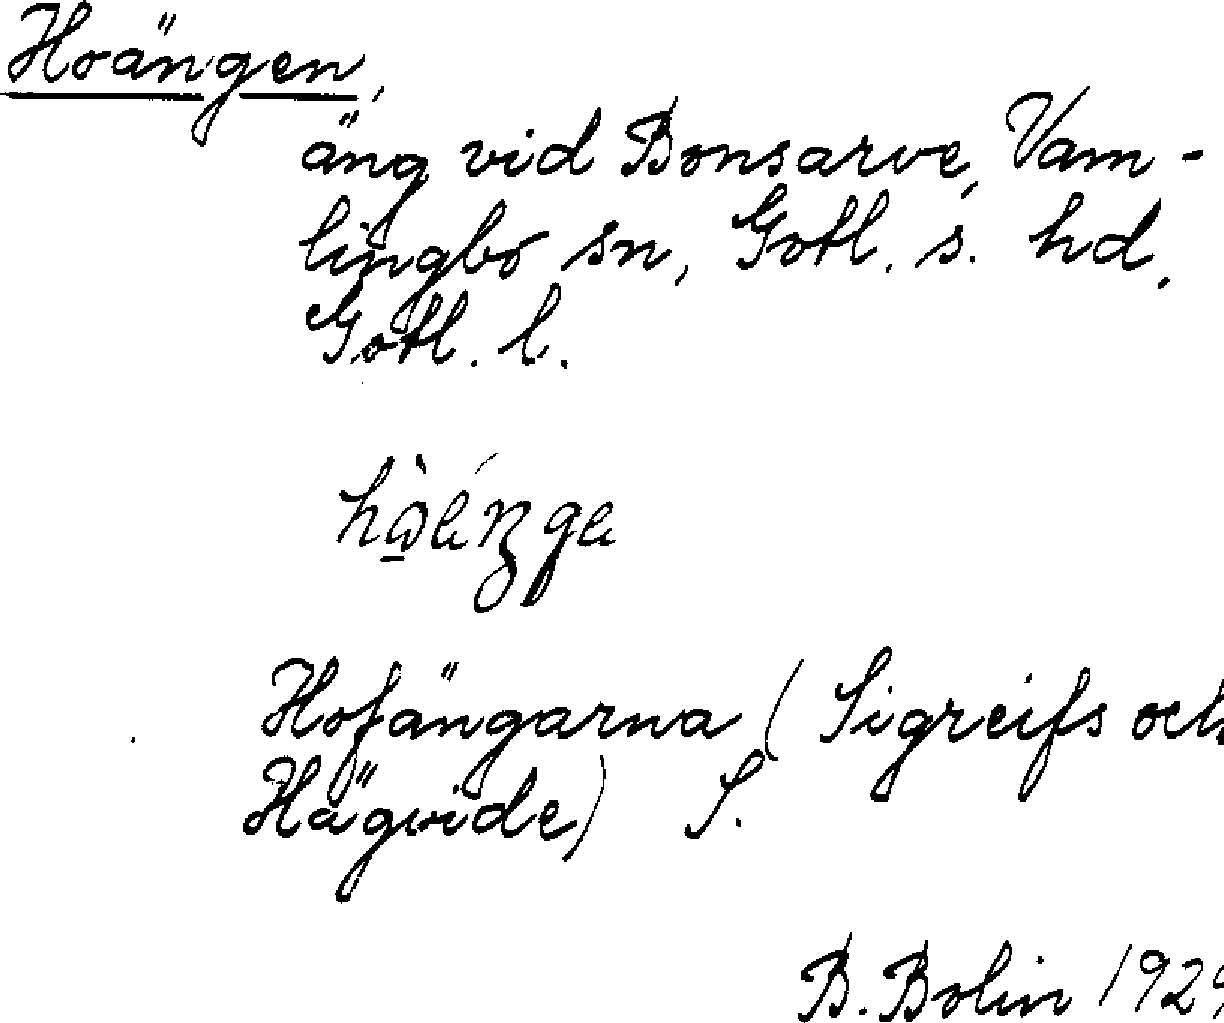 Hoängen,
äng vid Bonsarve, Vam-
lingbo sn, Gotl. s. hd,
Gotl. l.
Hofängarna (Sigreifs och
Hägvide) S.
B. Bolin 1929